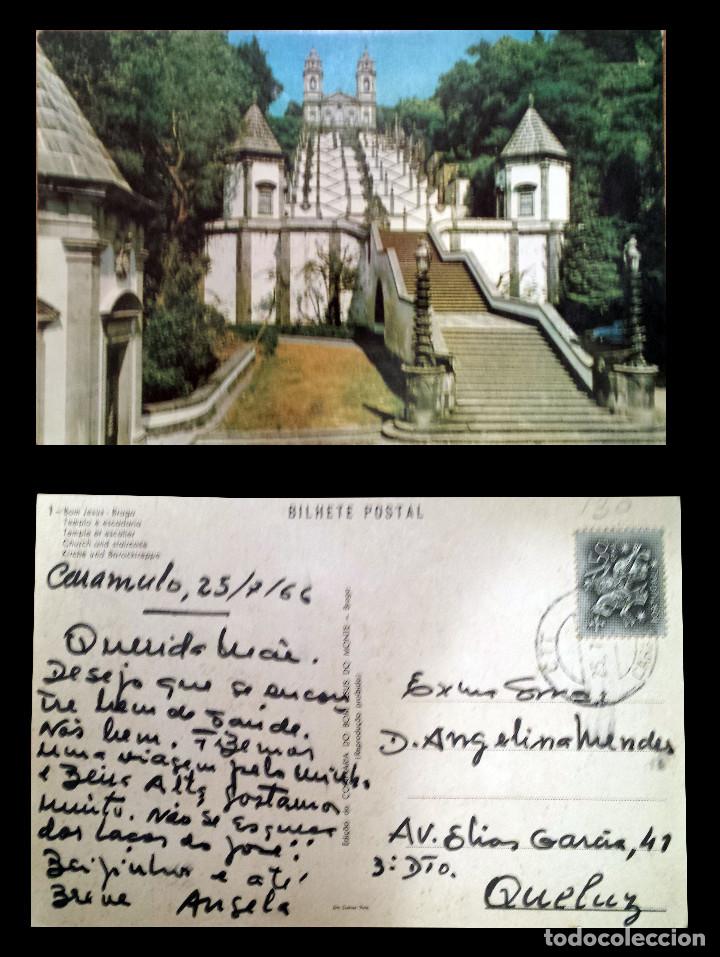 1 - Bom Jesus - Braga
Templo e escadaria
Temple et escalier
Church and staircase
Kirche und Barocktreppe
BILHETE POSTAL
130
Caramulo, 25/7/66
Querida Mãe.
Desejo que se encon
tre bem de saúde.
Nós bem. Tivemos
uma viagem pelo Minho
e Beira Alta, gostamos
muito. Não se esqueça
dos do José!!
Beijinhos e até
Breve Angela
Edição da CONFRARIA DO BOM JESUS DO MONTE - Braga
(Reprodução proibida)
Exma Snra
D. Angelina Mendes
Av. Elias Garcia, 41
3º Dto.
Queluz
todocoleccion.net